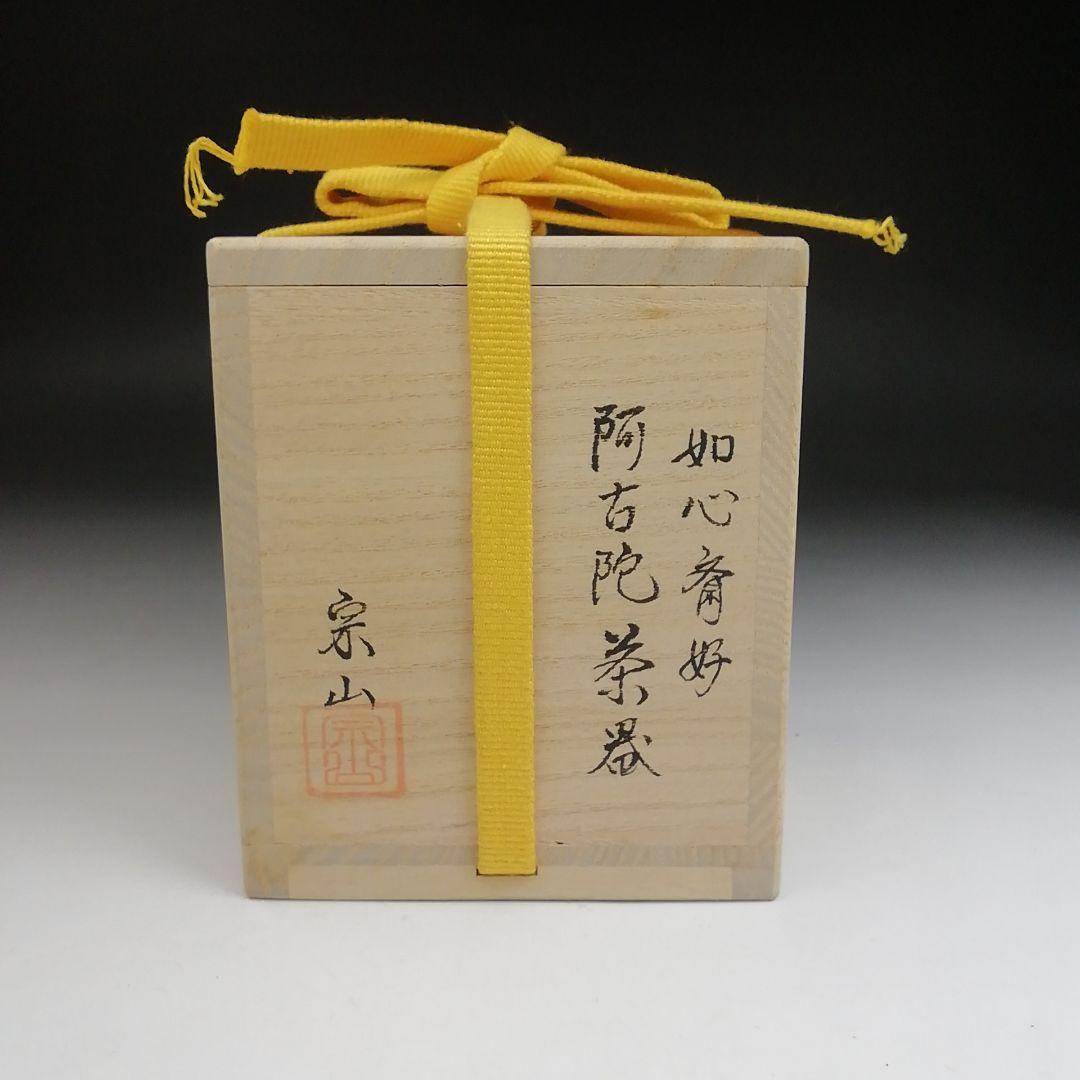 如心斎好
阿古陀茶器
宗山